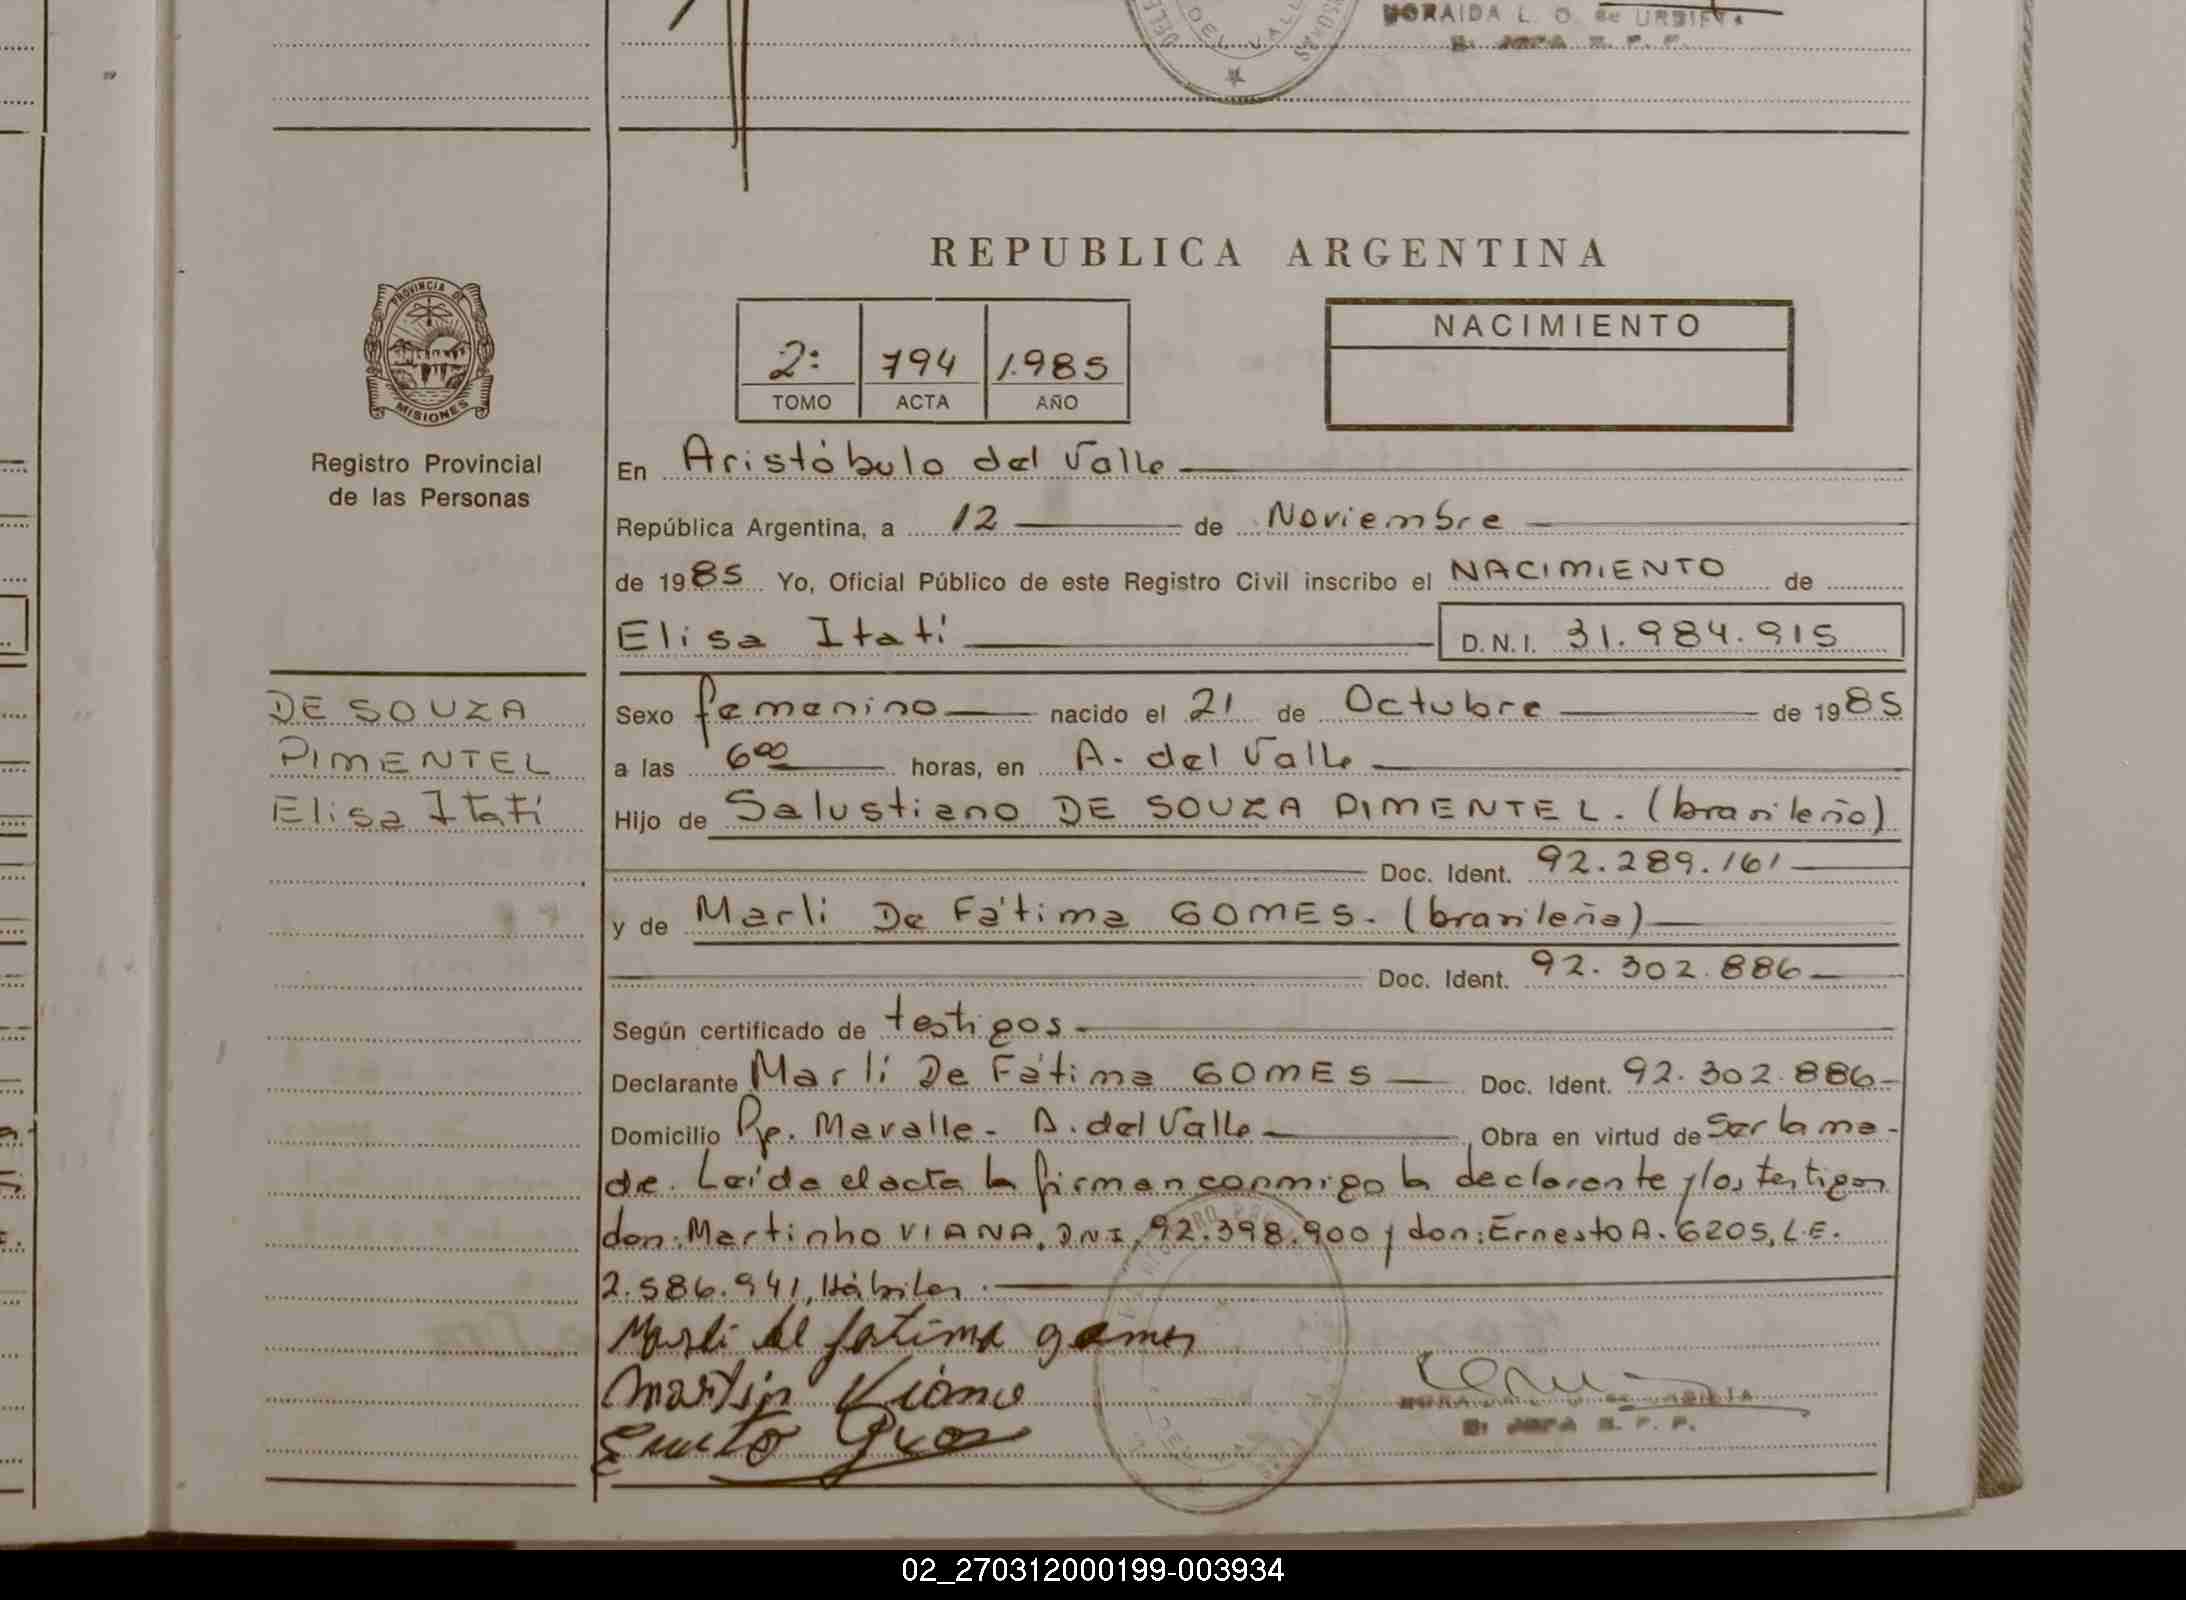 NORAIDA L. O. de URBIETA
REPUBLICA ARGENTINA
PROVINCIA DE
MISIONES
Registro Provincial
de las Personas
2: 794 1.985
TOMO ACTA AÑO
NACIMIENTO
En Aristóbulo del Valle
República Argentina, a 12 de Noviembre
de 1985 Yo, Oficial Público de este Registro Civil inscribo el NACIMIENTO de
Elisa Itatí D.N.I. 31.984.915
DE SOUZA
PIMENTEL
Elisa Itatí
Sexo femenino nacido el 21 de Octubre de 1985
a las 6 00 horas, en A. del Valle
Hijo de Salustiano DE SOUZA PIMENTEL. (brasileño)
Doc. Ident. 92.289.161
y de Marli De Fátima GOMES. (brasileña)
Doc. Ident. 92.302.886
Según certificado de testigos
Declarante Marli De Fátima GOMES Doc. Ident. 92.302.886
Domicilio Pje. Mavalle - A. del Valle Obra en virtud de Ser la ma-
dre. Leída el acta la firman conmigo la declarante y los testigos
don: Martinho VIANA, D.N.I. 92.398.900 y don: Ernesto A. 6205, L.E.
2.586.941, Hábiles.
Marli de fatima gomes
Martin Viana
Ernesto
02_270312000199-003934